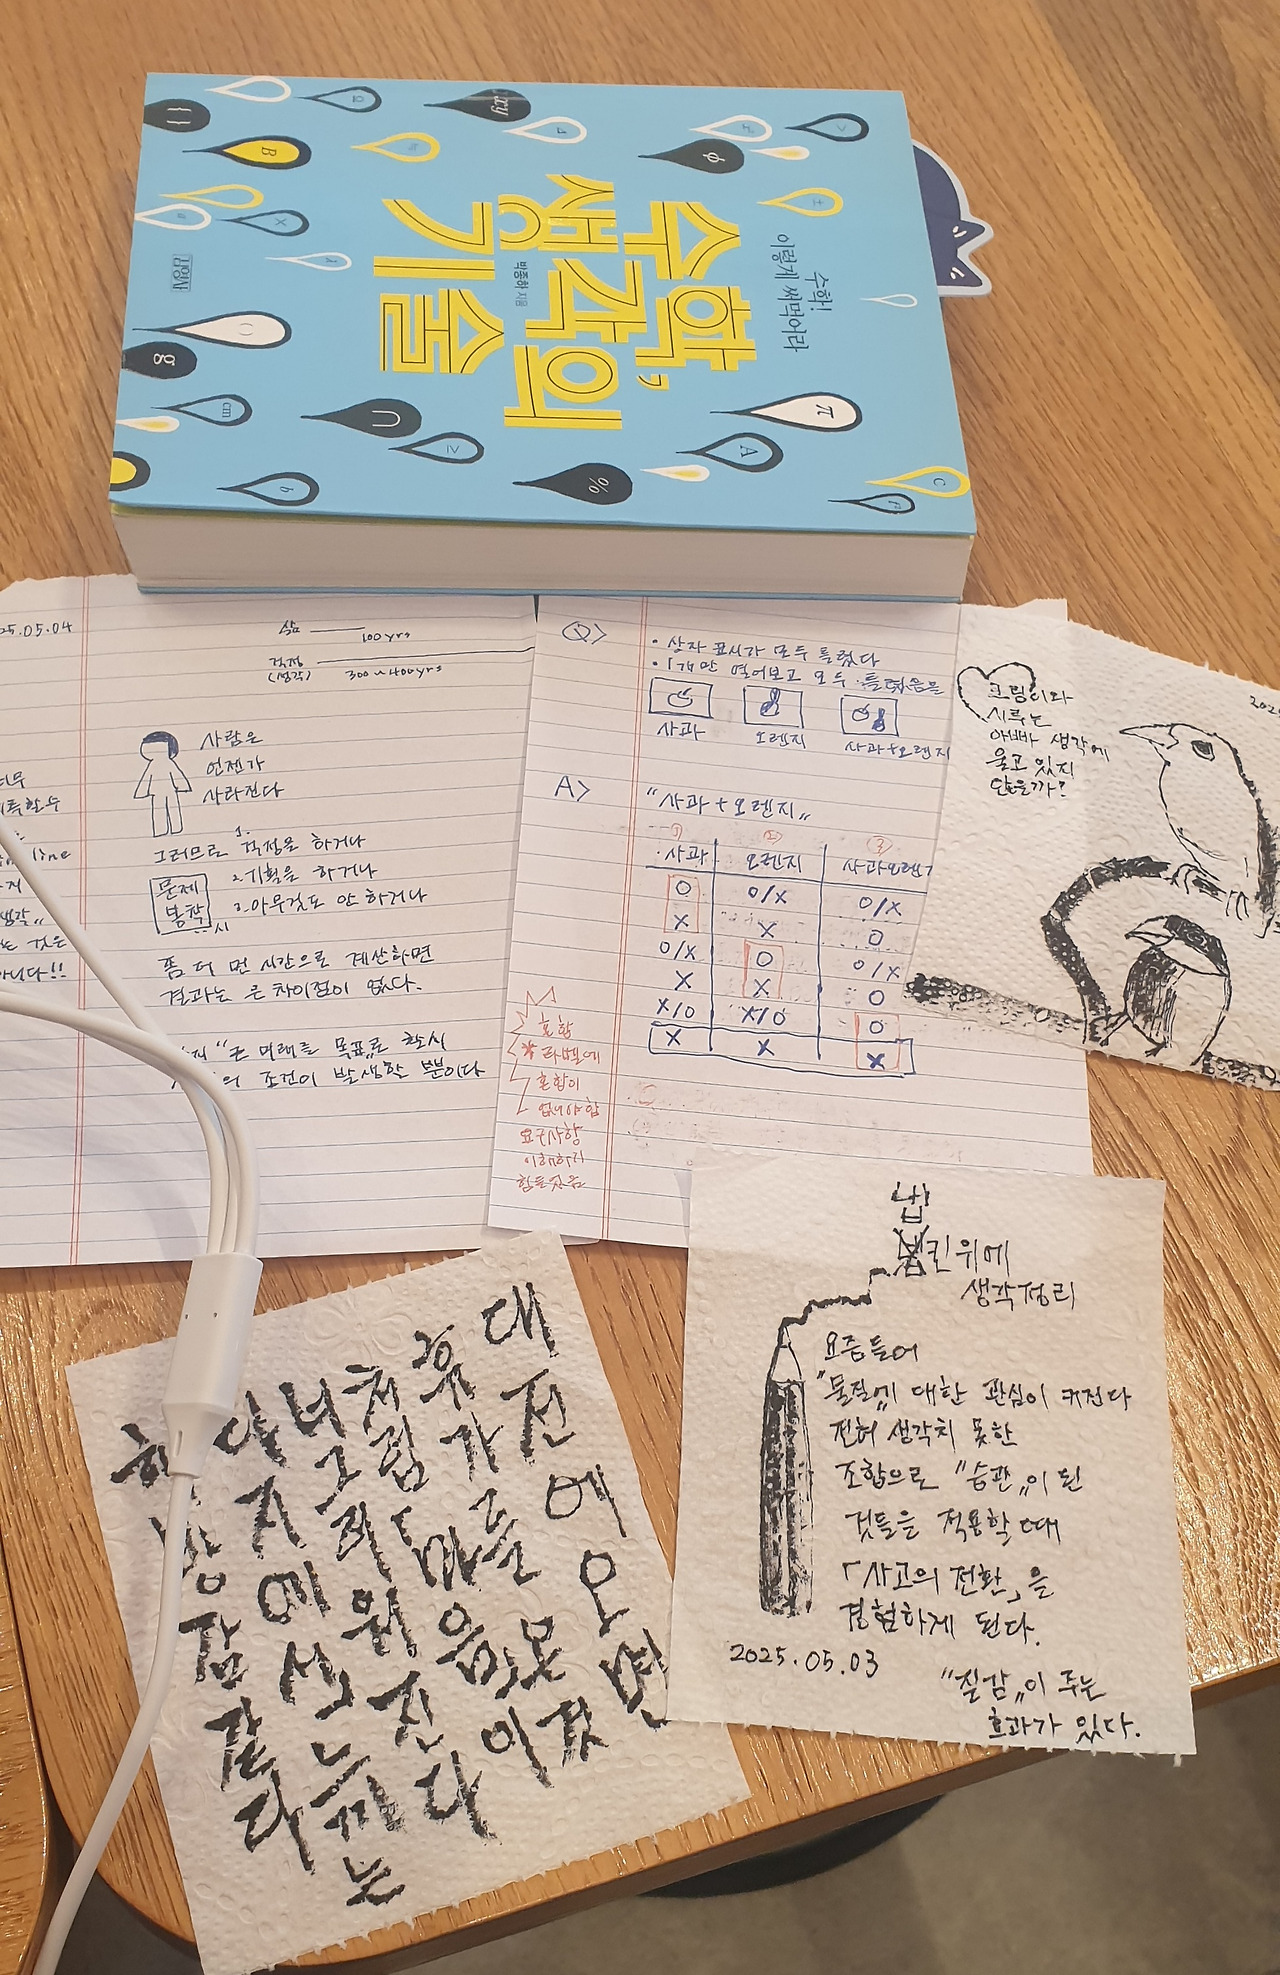 수학!
이렇게 써먹어라
수학,
생각의
기술
박종하 지음
김영사
25.05.04
삶
100yrs
걱정
(생각)
300~400yrs
사람은
언젠가
사라진다
그러므로 1. 걱정을 하거나
2. 기획을 하거나
3. 아무것도 안 하거나
문제
봉착
시
좀 더 먼 시간으로 계산하면
결과는 큰 차이점이 없다.
미래를 목표로 할시
조건이 발생할 뿐이다
line
생각"
는 것은
아니다!!
Q>
· 상자 표시가 모두 틀렸다
· 1개만 열어보고 모두 틀렸음을
사과 오렌지 사과+오렌지
A>
"사과+오렌지"
① ② ③
사과 오렌지 사과오렌지
O O/X O/X
X X O
O/X O O/X
X X O
X/O X/O O
X X X
혼합
* 라벨에
혼합이
없어야 함
요구사항
이해하기
힘들었음
크링이와
시루는
아빠 생각에
울고 있지
않을까?
202
냅
킨 위에
생각정리
요즘들어
"물질"에 대한 관심이 커진다
전혀 생각치 못한
조합으로 "습관"이 된
것들을 적용할 때
「사고의 전환」을
경험하게 된다.
2025.05.03
"질감"이 주는
효과가 있다.
대전에 오면